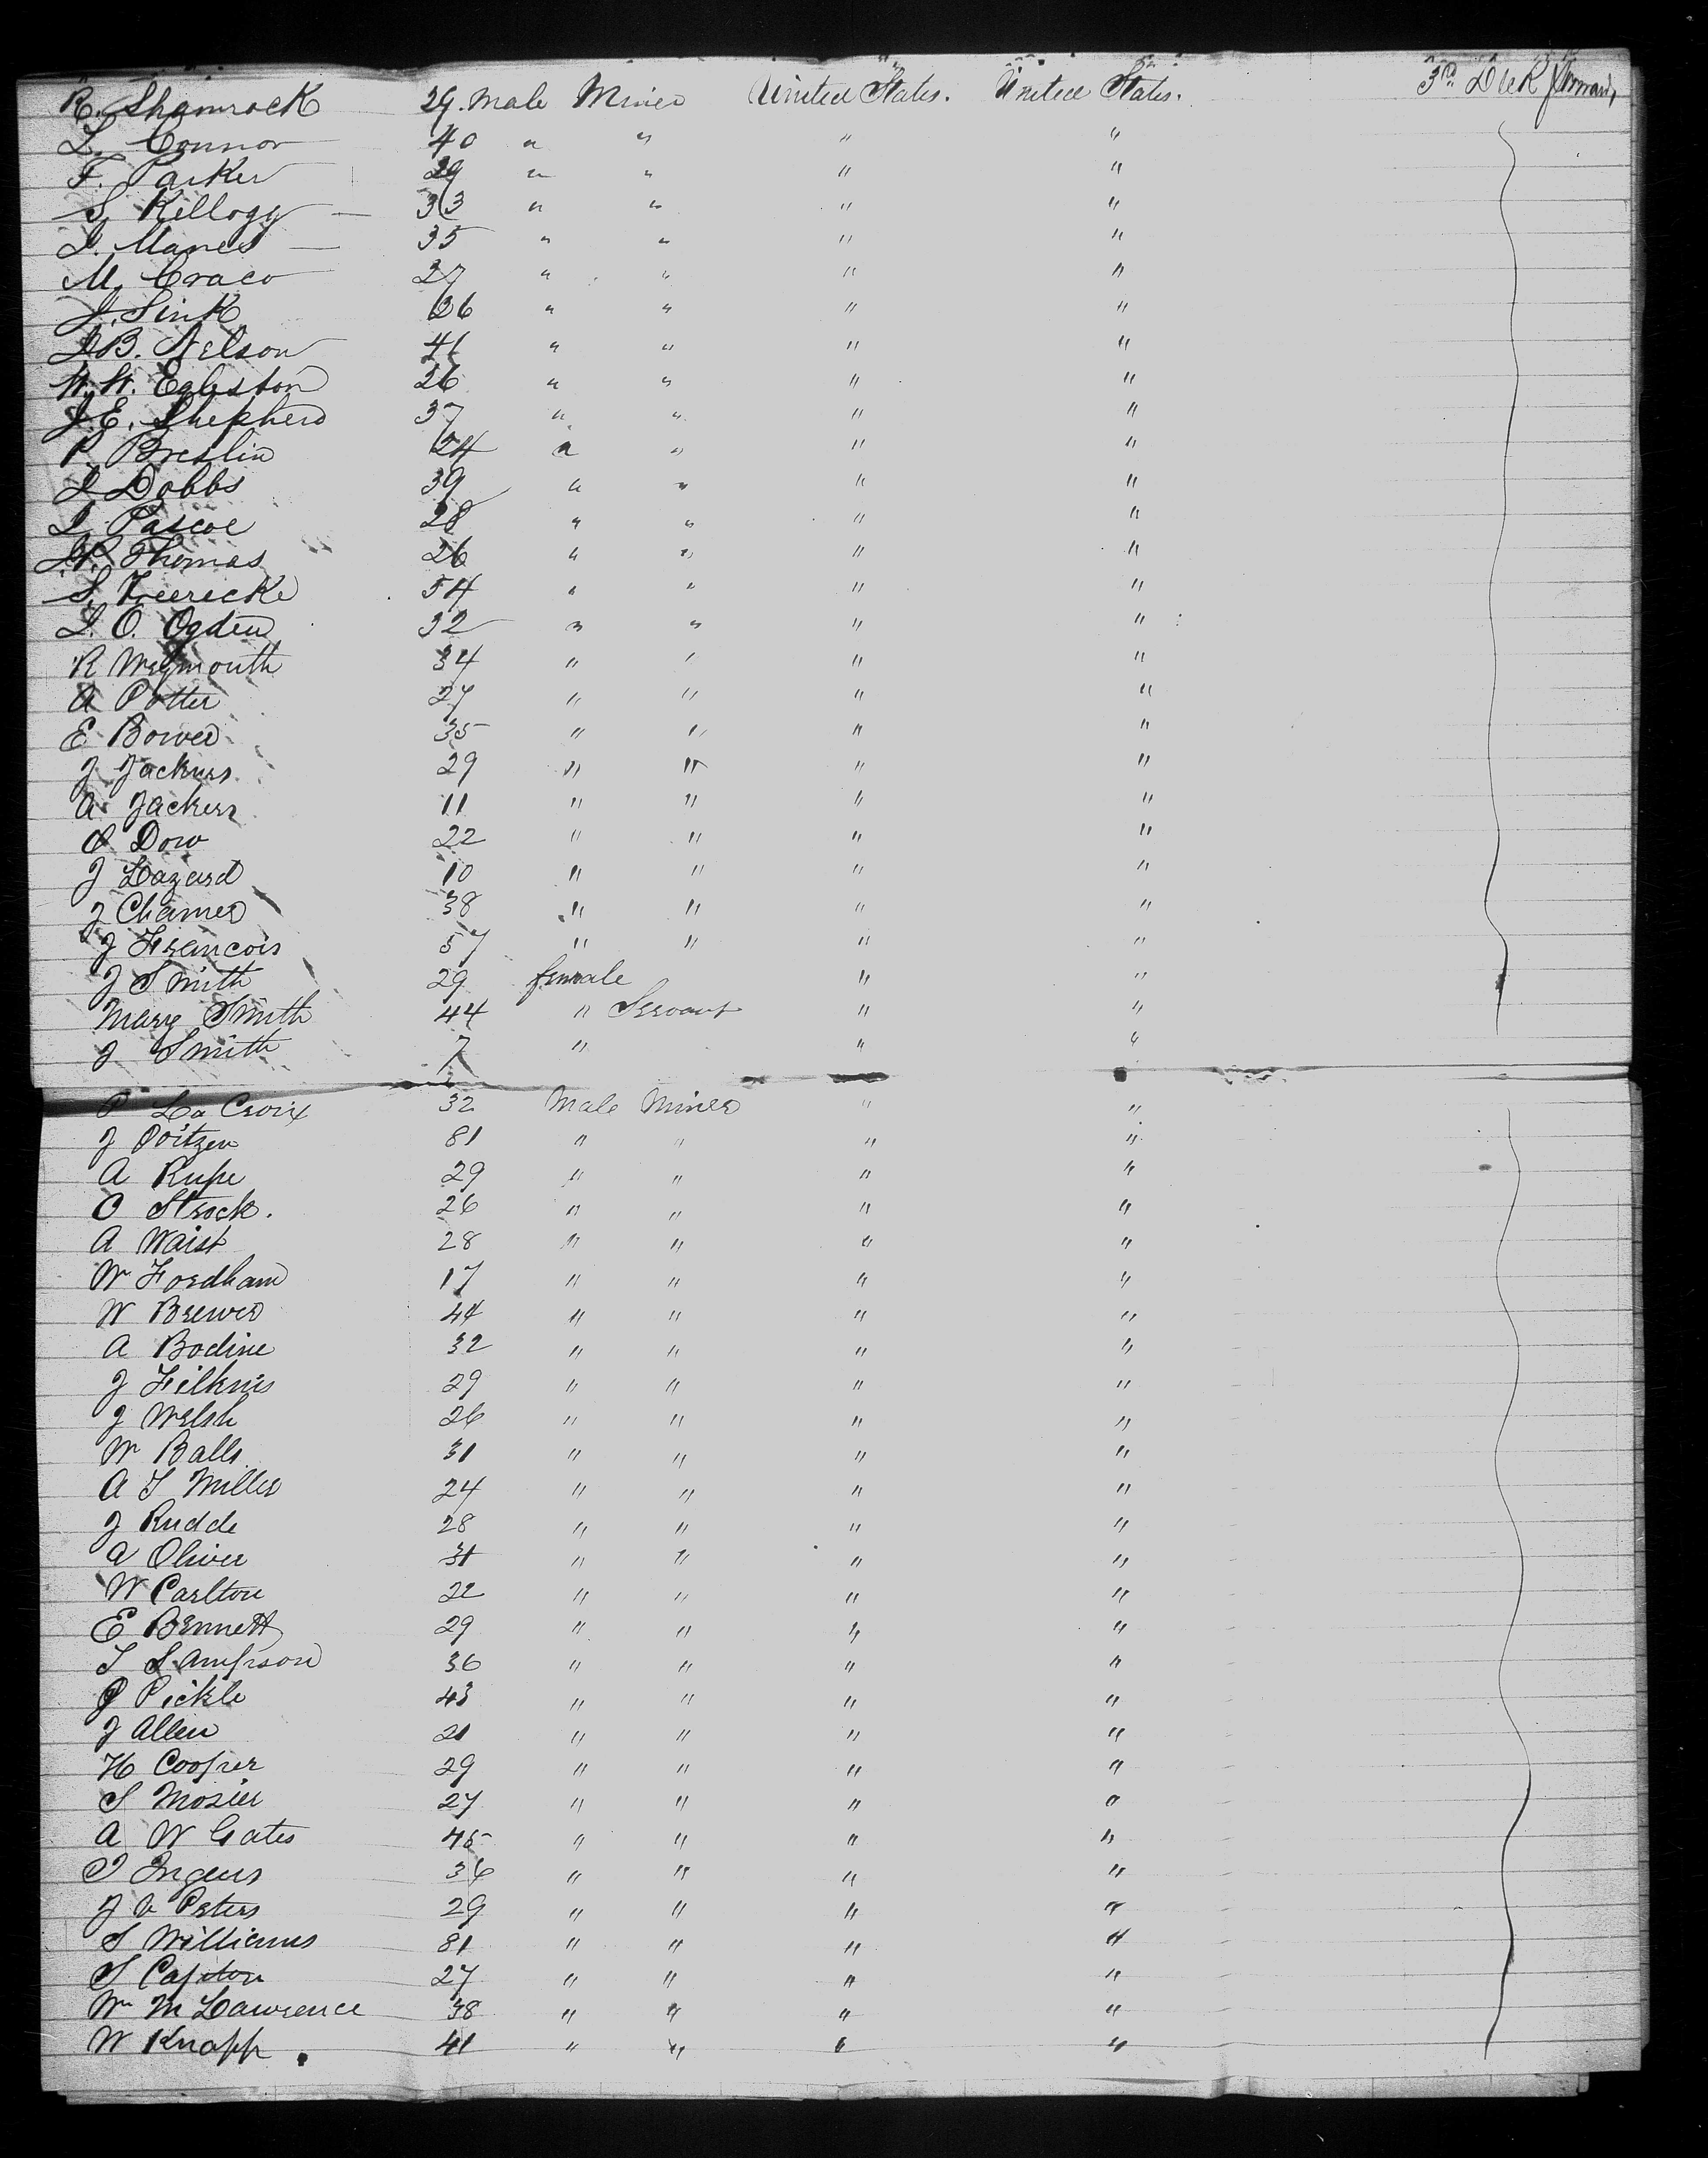 R. Shamrock 29. male Miner United States. United States. 3rd Deck forward,
L. Connor 40 " " " "
F. Parker 29 " " " "
S. Kellogg 33 " " " "
J. Manes 35 " " " "
M. Craco 27 " " " "
J. Sink 36 " " " "
J.B. Nelson 41 " " " "
W.W. Egleston 26 " " " "
J.E. Shepherd 37 " " " "
P. Breslin 24 " " " "
J Dobbs 39 " " " "
J. Pascoe 28 " " " "
J.P. Thomas 26 " " " "
S. 54 " " " "
L. O. Ogden 32 " " " "
R Weymouth 34 " " " "
A Potter 27 " " " "
E Bower 35 " " " "
J 29 " " " "
A 11 " " " "
O Dow 22 " " " "
J Lazard 10 " " " "
J Charmer 38 " " " "
J Francois 57 " " " "
J Smith 29 female " "
Mary Smith 44 " Servant " "
J Smith 7 " " "
P La Croix 32 Male Miner " "
J Poitzen 81 " " " "
A Rupe 29 " " " "
C Strock. 26 " " " "
A Waist 28 " " " "
W Fordham 17 " " " "
W Brewer 44 " " " "
A Bodine 32 " " " "
J Filkins 29 " " " "
J Welsh 26 " " " "
W Balls 31 " " " "
A T Miller 24 " " " "
J Rudde 28 " " " "
A Oliver 31 " " " "
W Carlton 22 " " " "
E Bennett 29 " " " "
T Sampson 36 " " " "
P Pickle 43 " " " "
J Allen 21 " " " "
H Cooper 29 " " " "
S Mosier 27 " " " "
A W Gates 45 " " " "
J 36 " " " "
J V Peters 29 " " " "
S Williams 81 " " " "
S Capiton 27 " " " "
Wm M Lawrence 38 " " " "
W Knapp. 41 " " " "